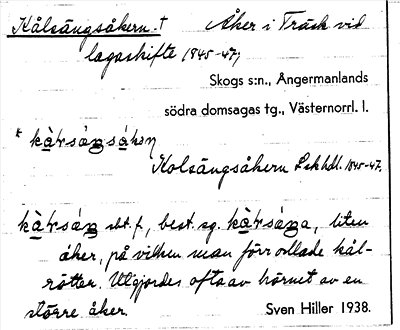 Kålsängsåkern. † Åker i Träsk vid
lagaskifte 1845-47,
Skogs s:n., Ångermanlands
södra domsagas tg., Västernorrl. l.
Kolsängsåkern Lskhdl. 1845-47.
sbt. f., best. sg. liten
åker, på vilken man förr odlade kål-
rötter. Utgjordes ofta av hörnet av en
större åker. Sven Hiller 1938.